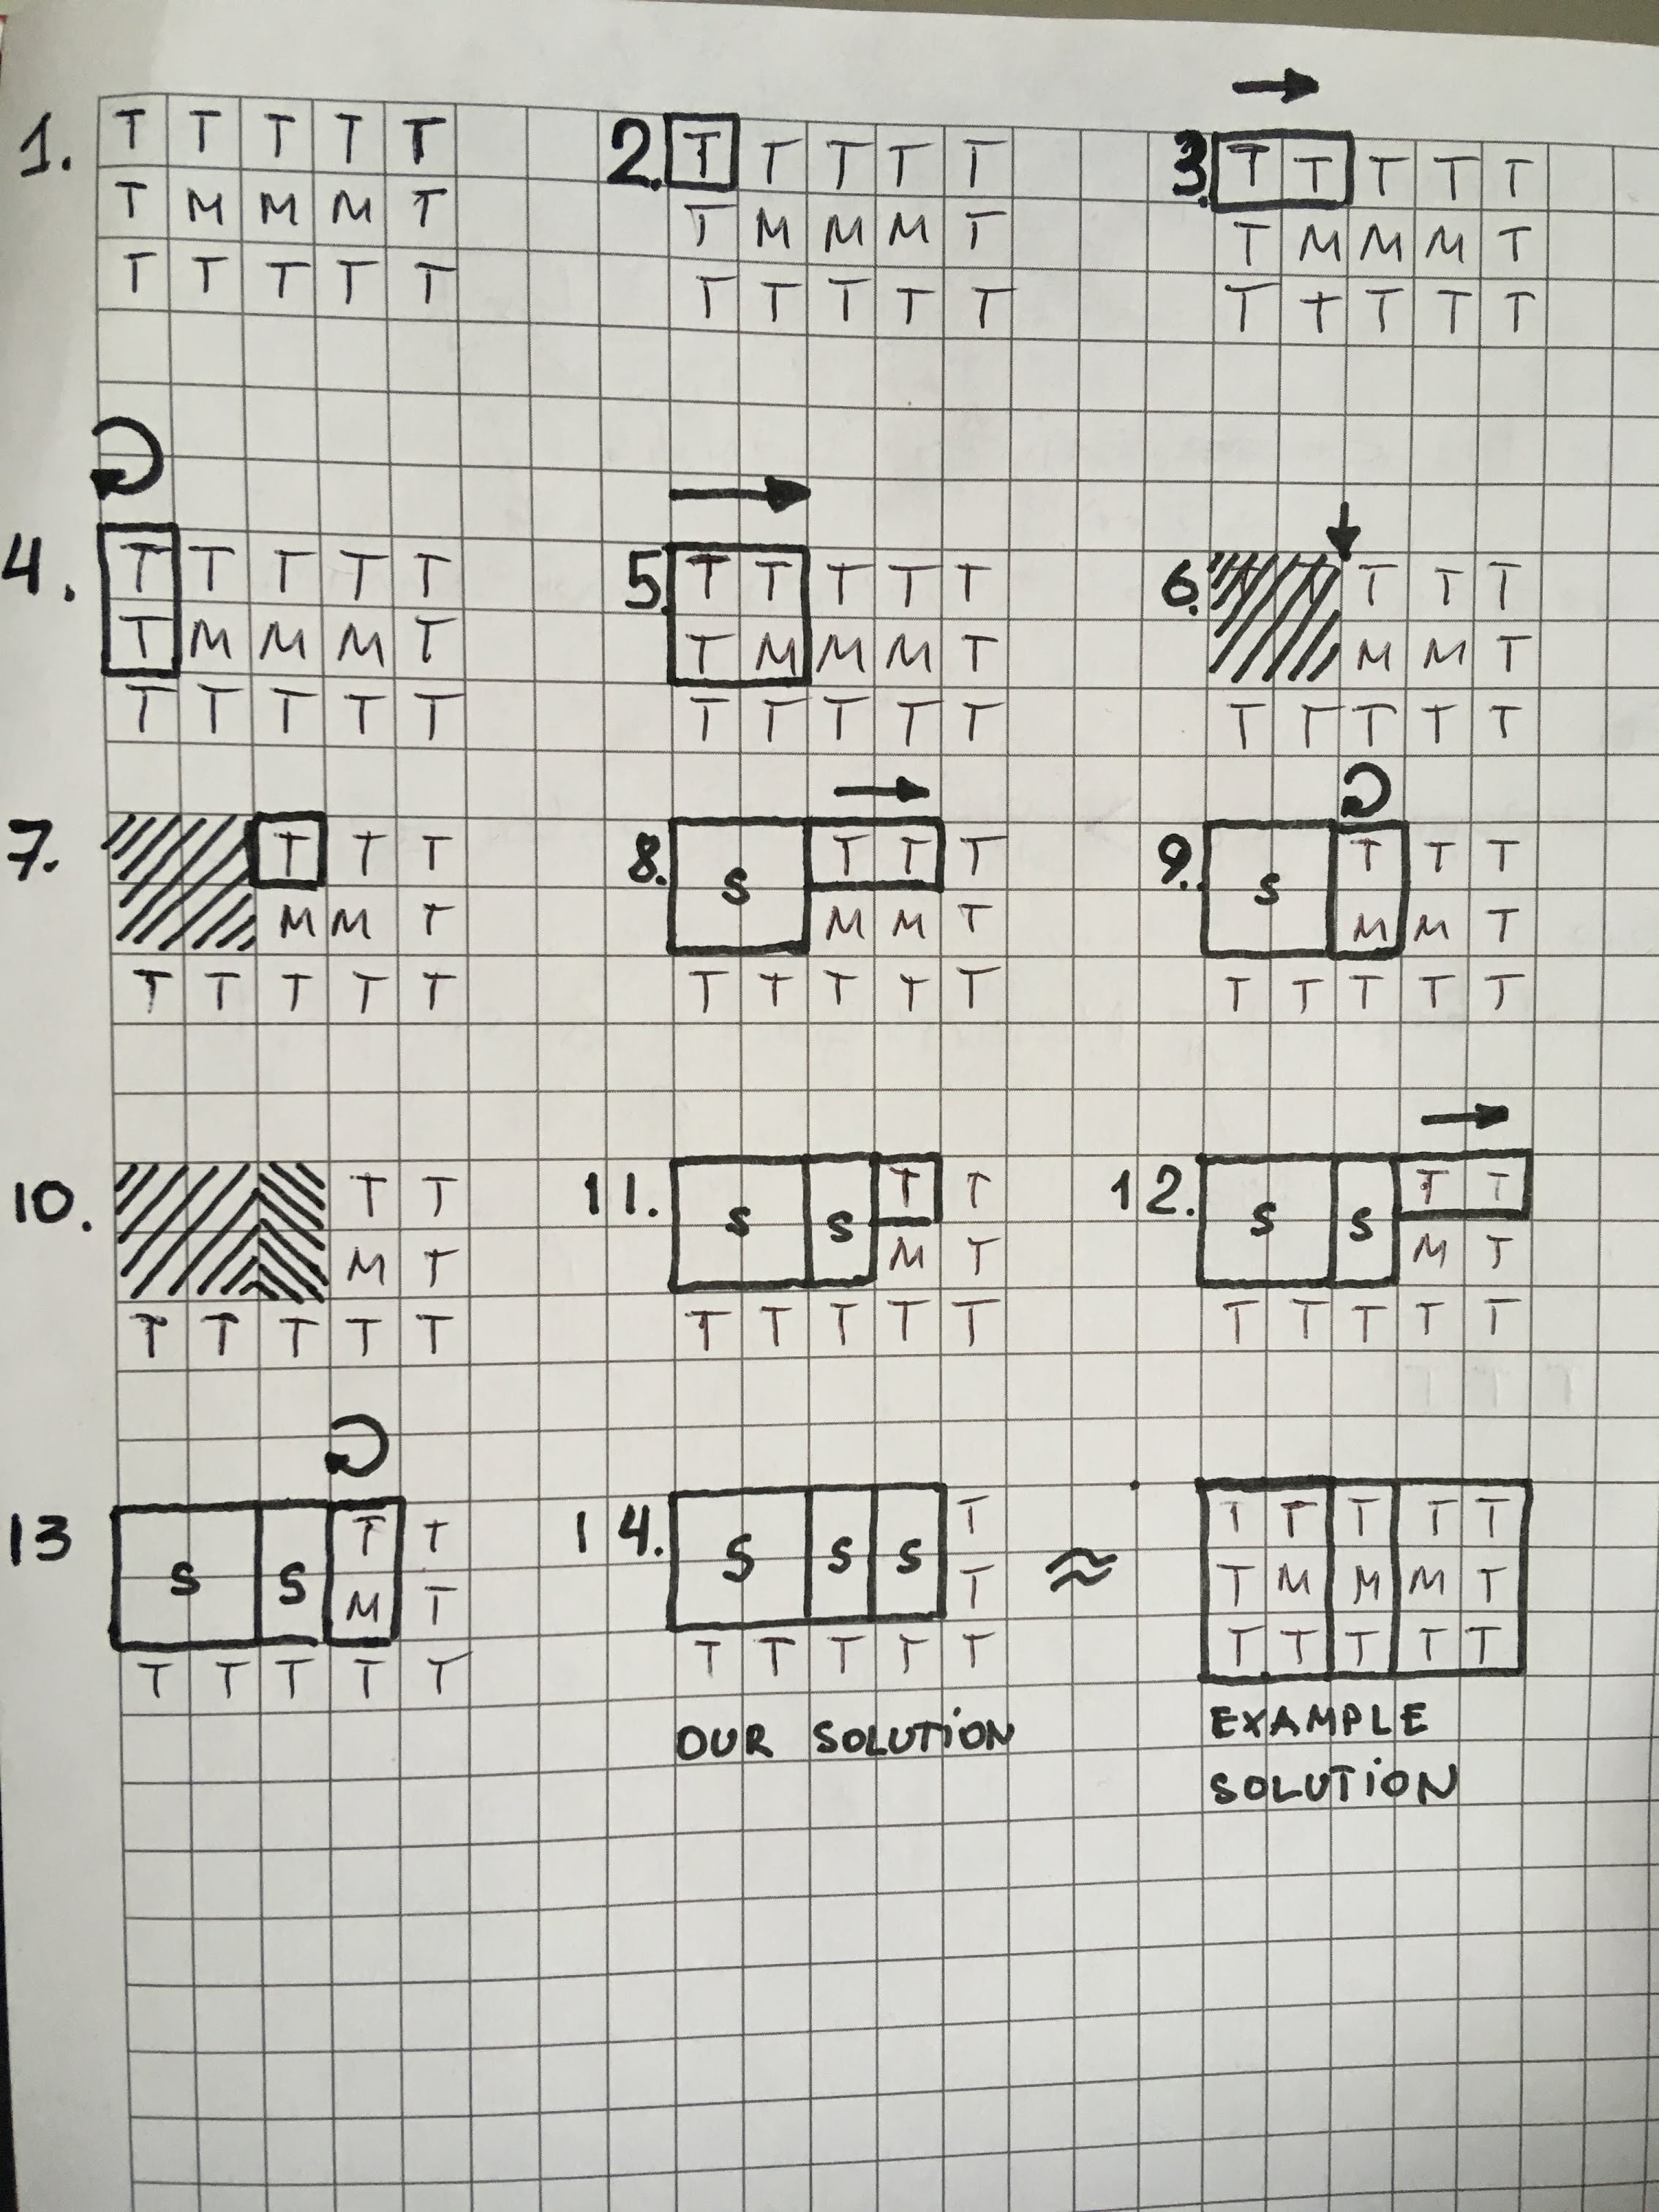 1. T T T T T
T M M M T
T T T T T
2. T T T T T
T M M M T
T T T T T
3. T T T T T
T M M M T
T T T T T
4. T T T T T
T M M M T
T T T T T
5. T T T T T
T M M M T
T T T T T
6. T T T
M M T
T T T T T
7. T T T
M M T
T T T T T
8. S T T T
M M T
T T T T T
9. S T T T
M M T
T T T T T
10. T T
M T
T T T T T
11. S S T T
M T
T T T T T
12. S S T T
M T
T T T T T
13 S S T T
M T
T T T T T
14. S S S T
T
T T T T T
OUR SOLUTION
≈
T T T T T
T M M M T
T T T T T
EXAMPLE
SOLUTION